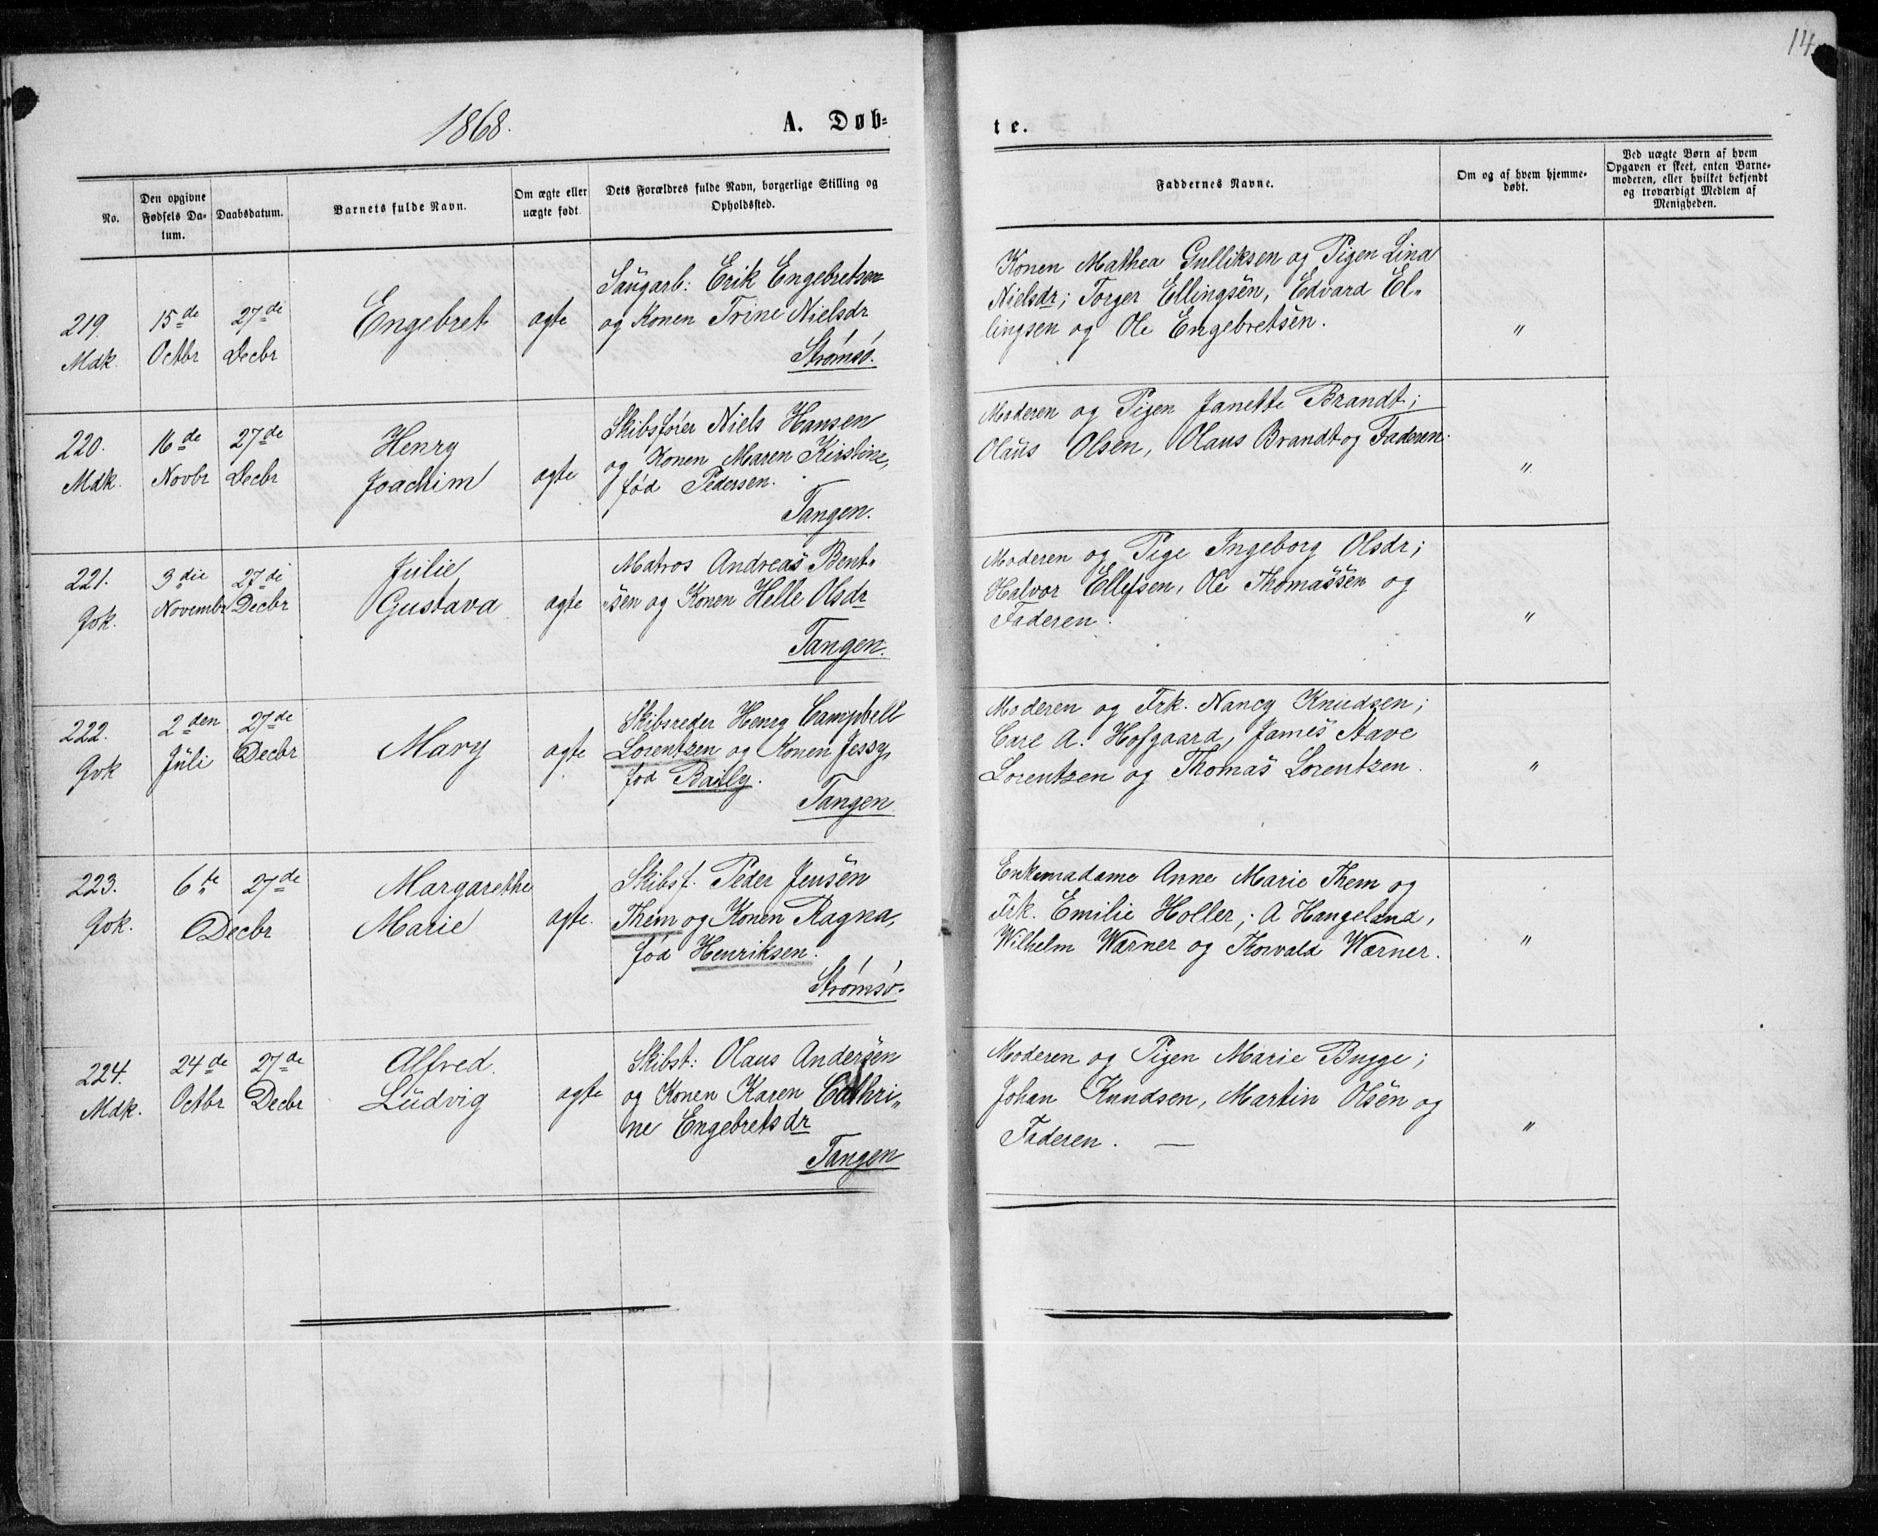 14
1868.
A. Døb=
te.
No.
Den opgivne Fødsels Da-tum.
Daabsdatum.
Barnets fulde Navn.
Om ægte eller uægte født.
Dets Forældres fulde Navn, borgerlige Stilling og Opholdssted.
Faddernes Navne.
Om og af hvem hjemme-døbt.
Ved uægte Børn af hvem Opgaven er skeet, enten Barne-moderen, eller hvilket bekjendt og troværdigt Medlem af Menigheden.
219. Mdk.
15de Octbr
27de Decbr
Engebret
ægte
Saugarb: Erik Engebretsen
og Konen Trine Nielsdr
Strømsø.
Konen Mathea Gulliksen og Pigen Lina
Nielsdr; Torger Ellingsen, Edvard El-
lingsen og Ole Engebretsen.
"
220. Mdk.
16de Novbr
27de Decbr
Henry
Joachim
ægte
Skibsfører Niels Hansen
og Konen Maren Kirstine,
fød Pedersen.
Tangen.
Moderen og Pigen Janette Brandt;
Olaus Olsen, Olaus Brandt og Faderen.
"
221. Qvk.
3die Novembr
27de Decbr
Julie
Gustava
ægte
Matros Andreas Bent-
sen og Konen Helle Olsdr
Tangen.
Moderen og Pige Ingeborg Olsdr;
Halvor Ellefsen, Ole Thomassen og
Faderen.
"
222. Qvk
2den Juli
27de Decbr
Mary
ægte
Skibsreder Henry Campbell
Lorentzen og Konen Jessy,
fød Baily.
Tangen.
Moderen og Frk. Nancy Knudsen;
Carl A. Hofgaard, James Stave
Lorentzen og Thomas Lorentzen.
"
223. Qvk.
6te
27de
Decbr
Margarethe
Marie
ægte.
Skibsf. Peder Jensen
Them og Konen Ragna,
fød Henriksen.
Strømsø.
Enkemadame Anne Marie Them og
Frk. Emilie Holler; A Hangeland,
Wilhelm Wærner og Thorvald Wærner.
"
224. Mdk.
24de Octbr
27de Decbr
Alfred
Ludvig
ægte
Skibst: Olaus Andersen
og Konen Karen Cathri-
ne Engebretsdr
Tangen
Moderen og Pigen Marie Bugge;
Johan Knudsen, Martin Olsen og
Faderen. —
"